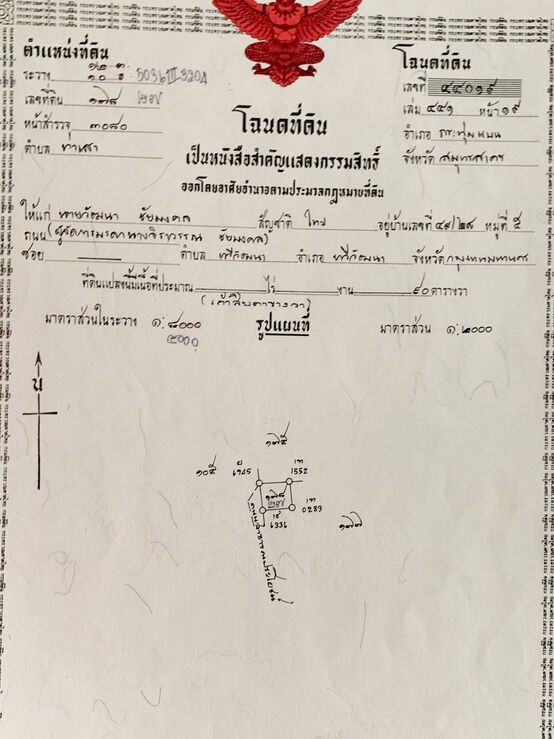 ตำแหน่งที่ดิน
ระวาง ๑๐ ฮ 5036 III 3204
เลขที่ดิน ๑๗๘ ๒๗
หน้าสำรวจ ๓๐๘๐
ตำบล ท่าเสา
โฉนดที่ดิน
เลขที่ ๔๔๐๑๙
เล่ม ๔๔๑ หน้า ๑๙
อำเภอ กระทุ่มแบน
จังหวัด สมุทรสาคร
โฉนดที่ดิน
เป็นหนังสือสำคัญแสดงกรรมสิทธิ์
ออกโดยอาศัยอำนาจตามประมวลกฎหมายที่ดิน
ให้แก่ นายวัฒนา ชัยมงคล สัญชาติ ไทย อยู่บ้านเลขที่ ๔๙/๒๘ หมู่ที่ ๕
ถนน (ผู้จัดการมรดกนางจิราวรรณ ชัยมงคล)
ซอย ตำบล ทวีวัฒนา อำเภอ ทวีวัฒนา จังหวัด กรุงเทพมหานคร
ที่ดินแปลงนี้มีเนื้อที่ประมาณ ไร่ งาน ๙๐ ตารางวา
(เก้าสิบตารางวา)
มาตราส่วนในระวาง ๑:๘๐๐๐ รูปแผนที่ มาตราส่วน ๑:๒๐๐๐
๔๐๐๐
น
๑๗๕
๑๐๕
1552
๑๗๘
๒๗
0283
๑๗๗
ทางสาธารณประโยชน์